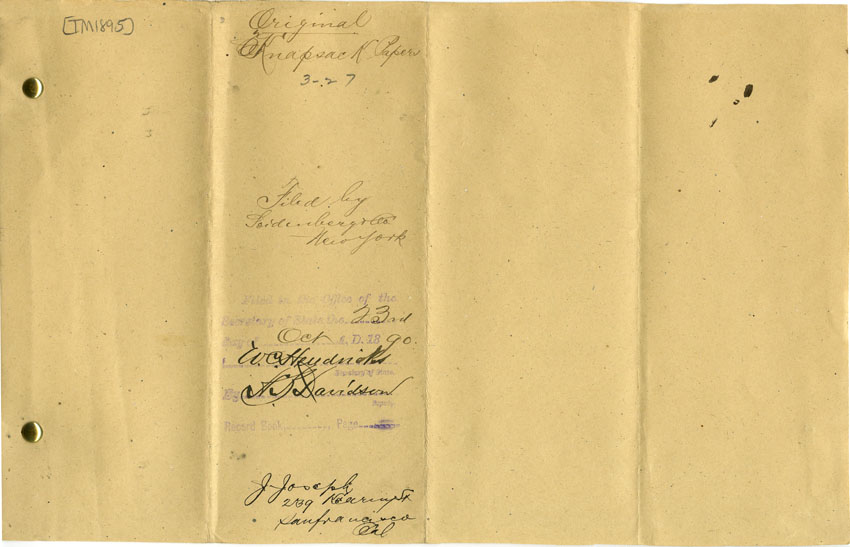 [TM1895]
Original
Knapsack Papers
3-27
Filed by
Seidenberg & Co
New York
Filed in the Office of the
Secretary of State the 23rd
day of Oct A.D. 1890.
W.C. Hendricks
Secretary of State.
By Davidson
Deputy.
Record Book Page
J. Joseph
239 Kearny St
San francisco
Cal